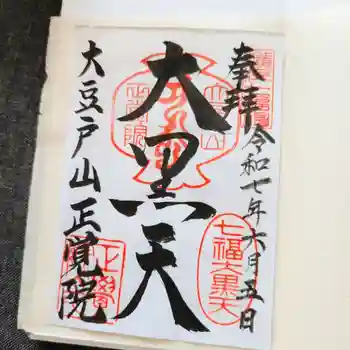 奉拝
令和七年六月五日
大黒天
七福大黒天
大豆戸山正覚院